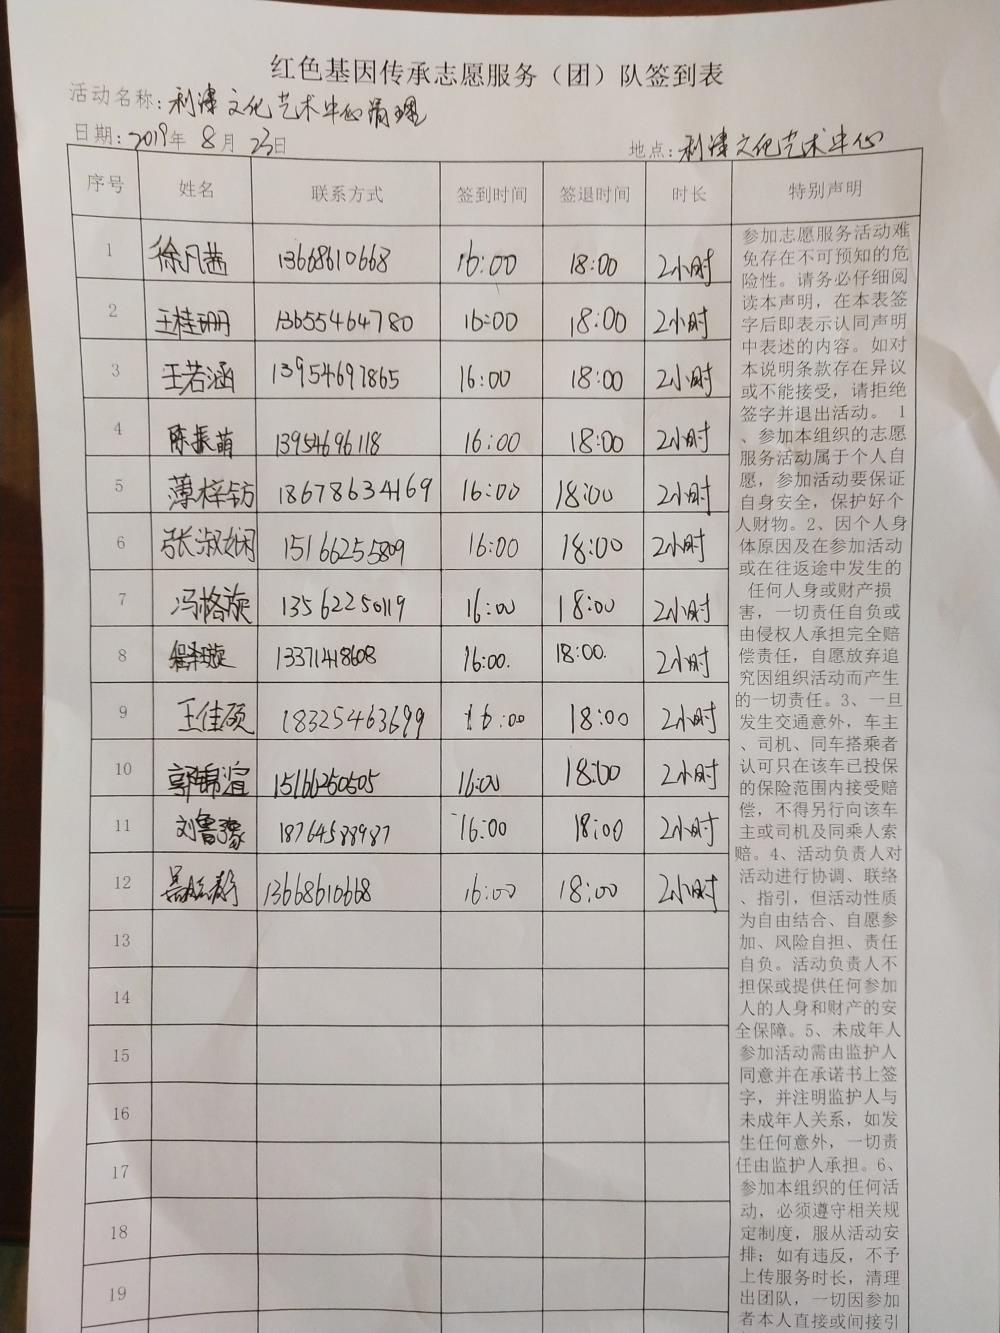 红色基因传承志愿服务（团）队签到表
活动名称：利津文化艺术中心清理
日期：2019年 8月 23日 地点：利津文化艺术中心
序号 姓名 联系方式 签到时间 签退时间 时长 特别声明
1 徐凡茜 13668610668 16:00 18:00 2小时
2 王桂珊 13655464780 16:00 18:00 2小时
3 王若涵 13954697865 16:00 18:00 2小时
4 陈振萌 13954696118 16:00 18:00 2小时
5 薄梓钫 18678634169 16:00 18:00 2小时
6 张淑娴 15166255809 16:00 18:00 2小时
7 冯格旋 13562250119 16:00 18:00 2小时
8 13371418608 16:00. 18:00. 2小时
9 王佳硕 18325463699 16:00 18:00 2小时
10 郭锦渲 15166250505 16:00 18:00 2小时
11 刘鲁豫 18764588987 16:00 18:00 2小时
12 13668610668 16:00 18:00 2小时
13
14
15
16
17
18
19
参加志愿服务活动难
免存在不可预知的危
险性。请务必仔细阅
读本声明，在本表签
字后即表示认同声明
中表述的内容。如对
本说明条款存在异议
或不能接受，请拒绝
签字并退出活动。 1
、参加本组织的志愿
服务活动属于个人自
愿，参加活动要保证
自身安全，保护好个
人财物。2、因个人身
体原因及在参加活动
或在往返途中发生的
任何人身或财产损
害，一切责任自负或
由侵权人承担完全赔
偿责任，自愿放弃追
究因组织活动而产生
的一切责任。3、一旦
发生交通意外，车主
、司机、同车搭乘者
认可只在该车已投保
的保险范围内接受赔
偿，不得另行向该车
主或司机及同乘人索
赔。4、活动负责人对
活动进行协调、联络
、指引，但活动性质
为自由结合、自愿参
加、风险自担、责任
自负。活动负责人不
担保或提供任何参加
人的人身和财产的安
全保障。5、未成年人
参加活动需由监护人
同意并在承诺书上签
字，并注明监护人与
未成年人关系，如发
生任何意外，一切责
任由监护人承担。6、
参加本组织的任何活
动，必须遵守相关规
定制度，服从活动安
排；如有违反，不予
上传服务时长，清理
出团队，一切因参加
者本人直接或间接引